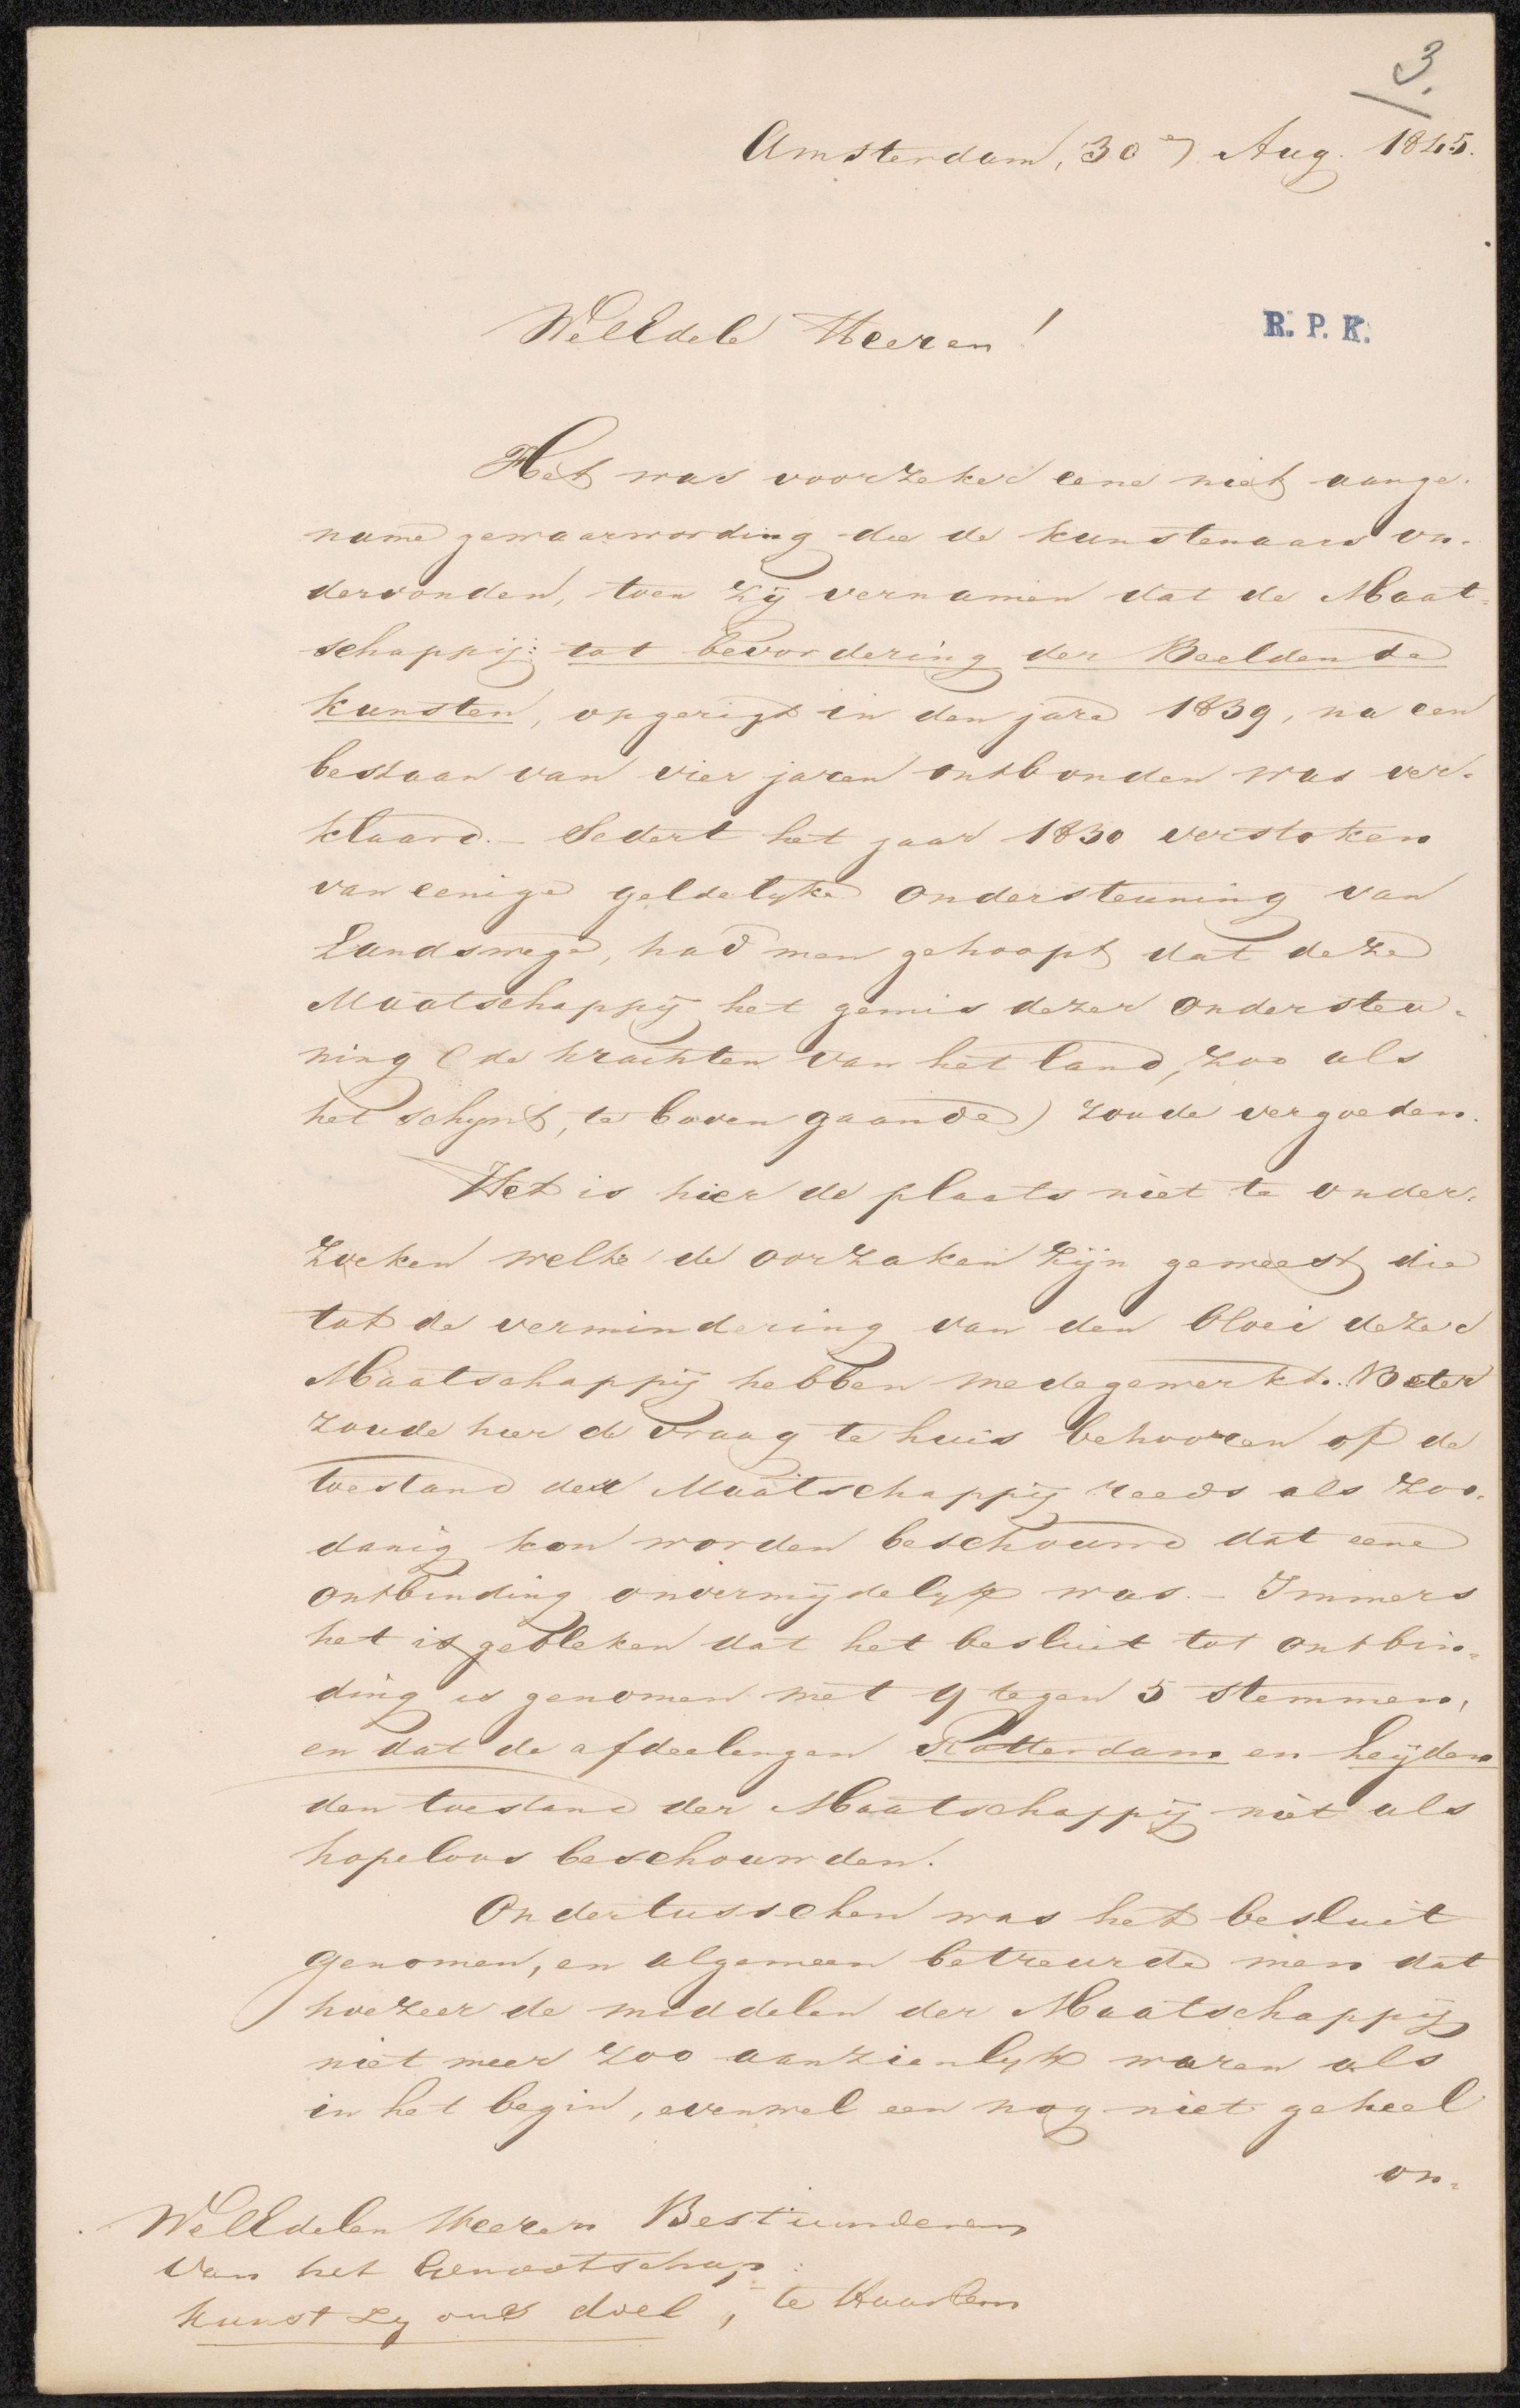 3.
Amsterdam, 30en Aug. 1845.
WelEdele Heeren!
R. P. K.
Het was voorzeker eene niet aange-
name gewaarwording die de kunstenaars on-
dervonden, toen zij vernamen dat de Maat-
schappij: tot bevordering der Beeldende
kunsten, opgerigt in den jare 1839, na een
bestaan van vier jaren ontbonden was ver-
klaard. - Sedert het jaar 1830 verstoken
van eenige geldelyke ondersteuning van
Landswege, had men gehoopt dat deze
Maatschappij het gemis dezer ondersteu-
ning (de krachten van het land, zoo als
het schynt, te boven gaande) zoude vergoeden.
Het is hier de plaats niet te onder-
zoeken welke de oorzaken zijn geweest die
tot de vermindering van den bloei dezer
Maatschappij hebben medegewerkt. Beter
zoude hier de vraag te huis behooren of de
toestand der Maatschappij reeds als zoo-
danig kon worden beschouwd dat eene
ontbinding onvermijdelyk was. - Immers
het is gebleken dat het besluit tot ontbin-
ding is genomen met 9 tegen 5 stemmen,
en dat de afdeelingen Rotterdam en Leijden
den toestand der Maatschappij niet als
hopeloos beschouwden.
Ondertusschen was het besluit
genomen, en algemeen betreurde men dat
hoezeer de middelen der Maatschappij
niet meer zoo aanzienlyk waren als
in het begin, evenwel een nog niet geheel
on-
WelEdelen Heeren Bestuurderen
van het Genootschap:
kunst zy ons doel, te Haarlem